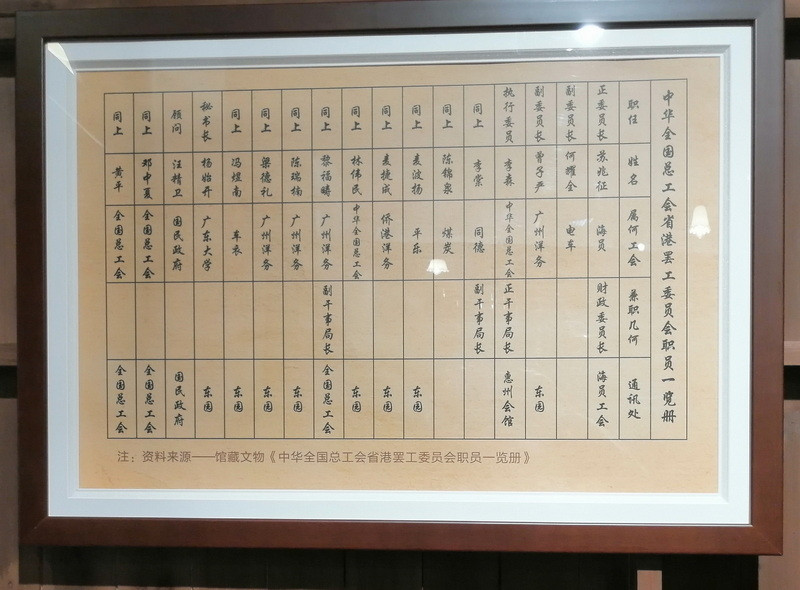 中华全国总工会省港罢工委员会职员一览册
职任 姓名 属何工会 兼职几何 通讯处
正委员长 苏兆征 海员 财政委员长 海员工会
副委员长 何耀全 电车
副委员长 曾子严 广州洋务 东园
执行委员 李森 中华全国总工会 正干事局长 惠州会馆
同上 李棠 同德 副干事局长
同上 陈锦泉 煤炭
同上 麦波扬 平乐 东园
同上 麦捷成 侨港洋务 东园
同上 林伟民 中华全国总工会 东园
同上 黎福畴 广州洋务 副干事局长 全国总工会
同上 陈瑞楠 广州洋务 东园
同上 梁德礼 广州洋务 东园
同上 冯煜南 车衣 东园
秘书长 杨始开 广东大学 东园
顾问 汪精卫 国民政府 国民政府
同上 邓中夏 全国总工会 全国总工会
同上 黄平 全国总工会 全国总工会
注：资料来源——馆藏文物《中华全国总工会省港罢工委员会职员一览册》